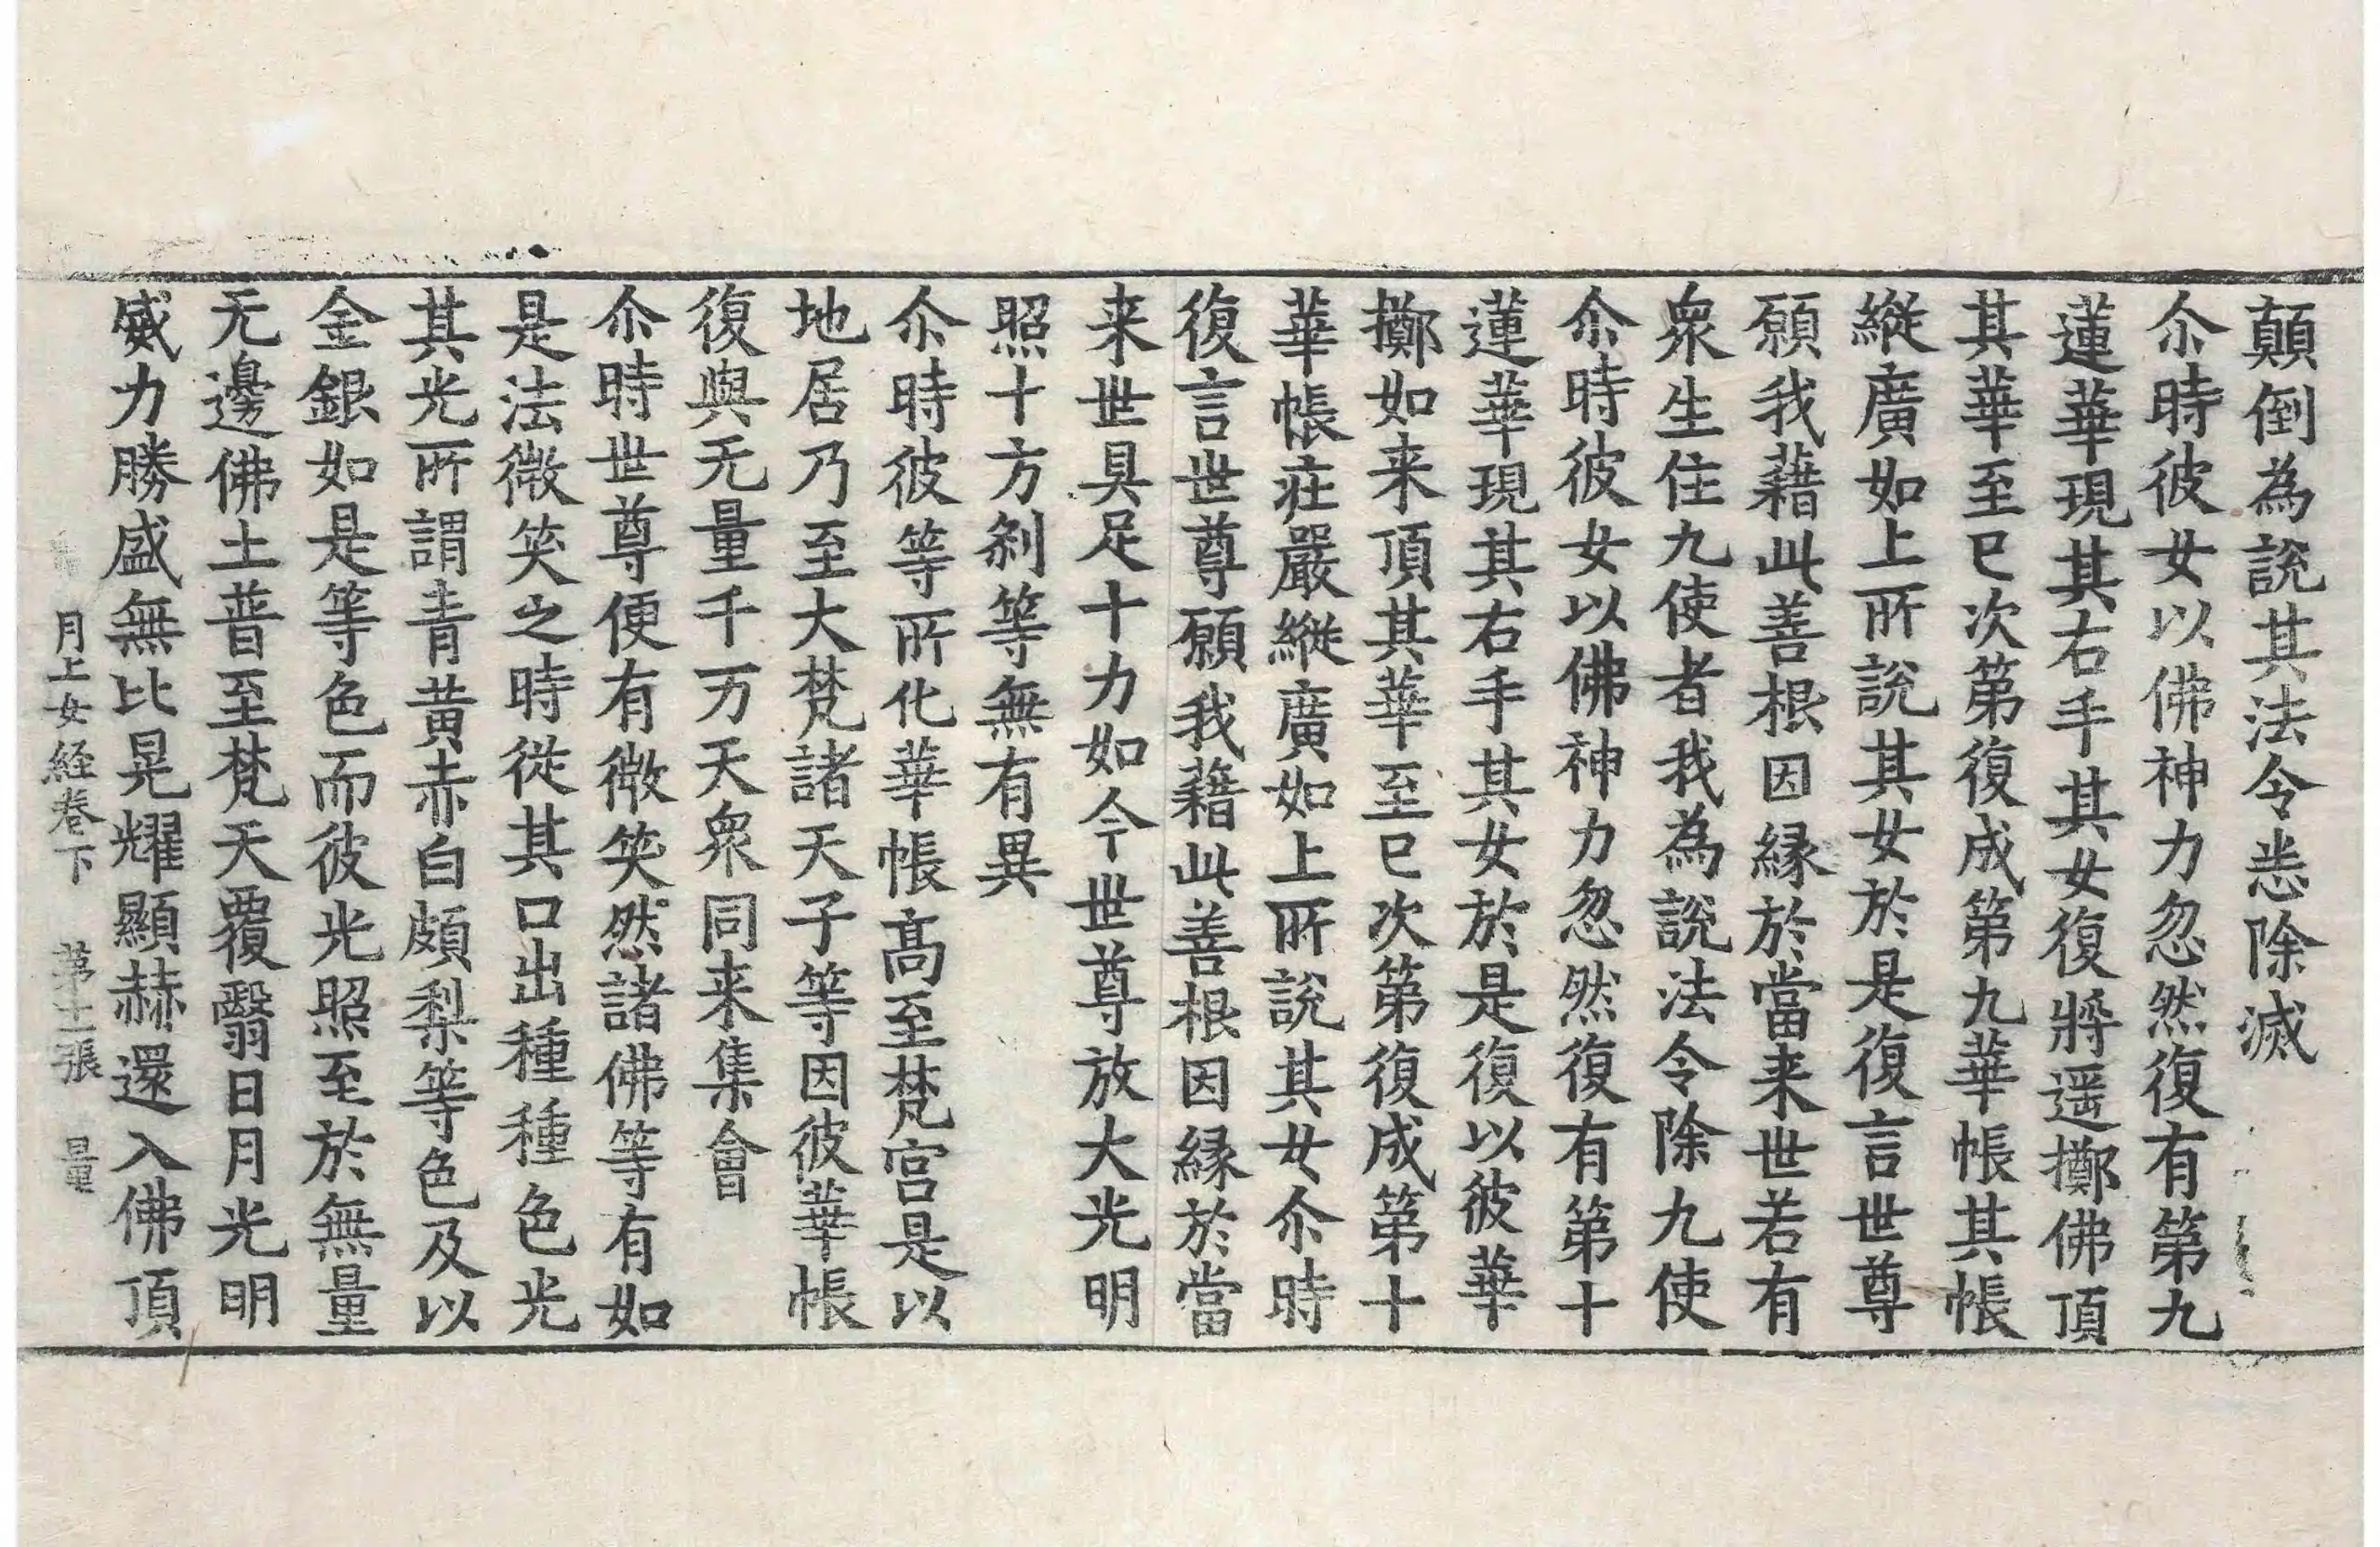 顛倒為說其法令悉除滅
尒時彼女以佛神力忽然復有第九
蓮華現其右手其女復將遥擲佛頂
其華至已次第復成第九華帳其帳
縱廣如上所說其女於是復言世尊
願我藉此善根因緣於當来世若有
衆生住九使者我為說法令除九使
尒時彼女以佛神力忽然復有第十
蓮華現其右手其女於是復以彼華
擲如来頂其華至已次第復成第十
華帳莊嚴縱廣如上所說其女尒時
復言世尊願我藉此善根因緣於當
来世具足十力如今世尊放大光明
照十方剎等無有異
尒時彼等所化華帳高至梵宮是以
地居乃至大梵諸天子等因彼華帳
復與无量千万天衆同来集會
尒時世尊便有微笑然諸佛等有如
是法微笑之時從其口出種種色光
其光所謂青黃赤白頗梨等色及以
金銀如是等色而彼光照至於無量
无邊佛土普至梵天覆翳日月光明
威力勝盛無比晃耀顯赫還入佛頂
月上女経卷下　第十二張　量